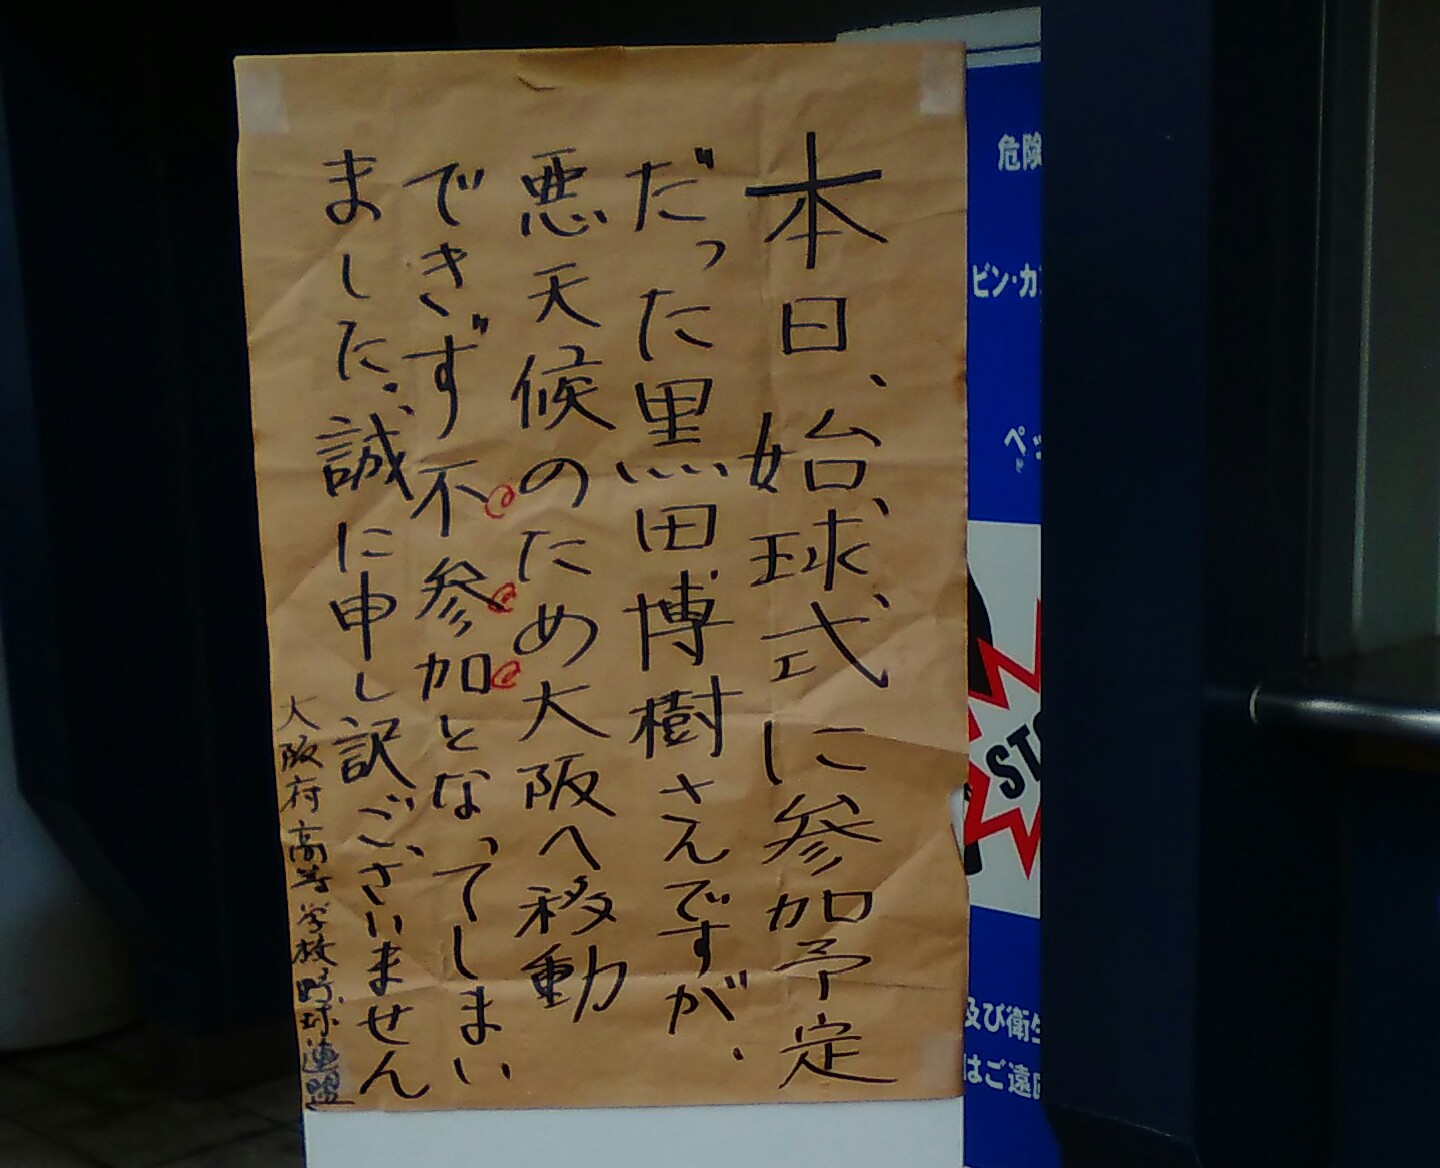 本日、始球式に参加予定
だった黒田博樹さんですが、
悪天候のため大阪へ移動
できず不参加となってしまい
ました。誠に申し訳ございません
大阪府高等学校野球連盟
危険
ビン・カ
ペッ
ST
及び衛生
はご遠